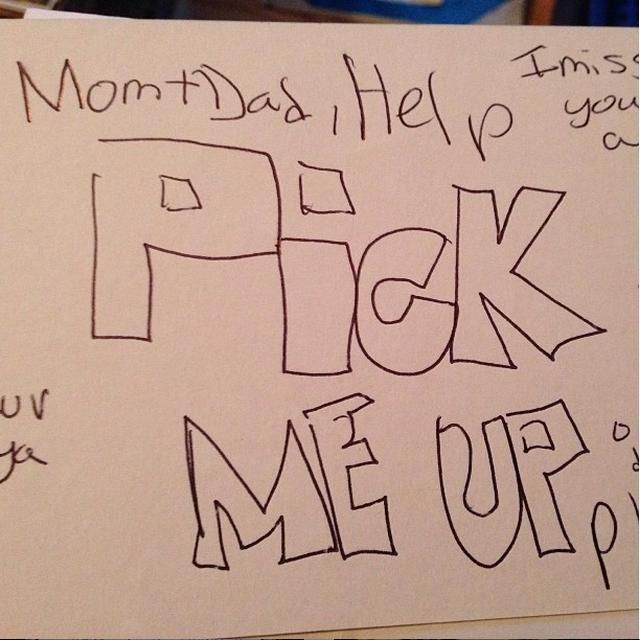 Mom + Dad, Help
I miss
you
a
Pick
ME UP
uv
ya